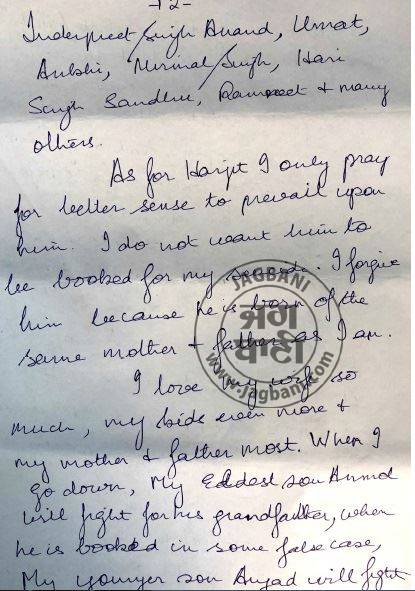 -12-
Inderpreet Singh Anand, Umat,
Nirmal Singh, Hari
Singh Sandhu, & many
others.
As for Harjit I only pray
for better sense to prevail upon
him. I do not want him to
be booked for my suicide. I forgive
him because he is born of the
same mother & father as I am.
I love my wife so
much, my kids even more &
my mother & father most. When I
go down, My Eddest son Anmol
will fight for his grandfather, when
he is booked in some false case,
My younger son Angad will fight
JAGBANI
ਜਗ
ਬਾਣੀ
www.jagbani.com